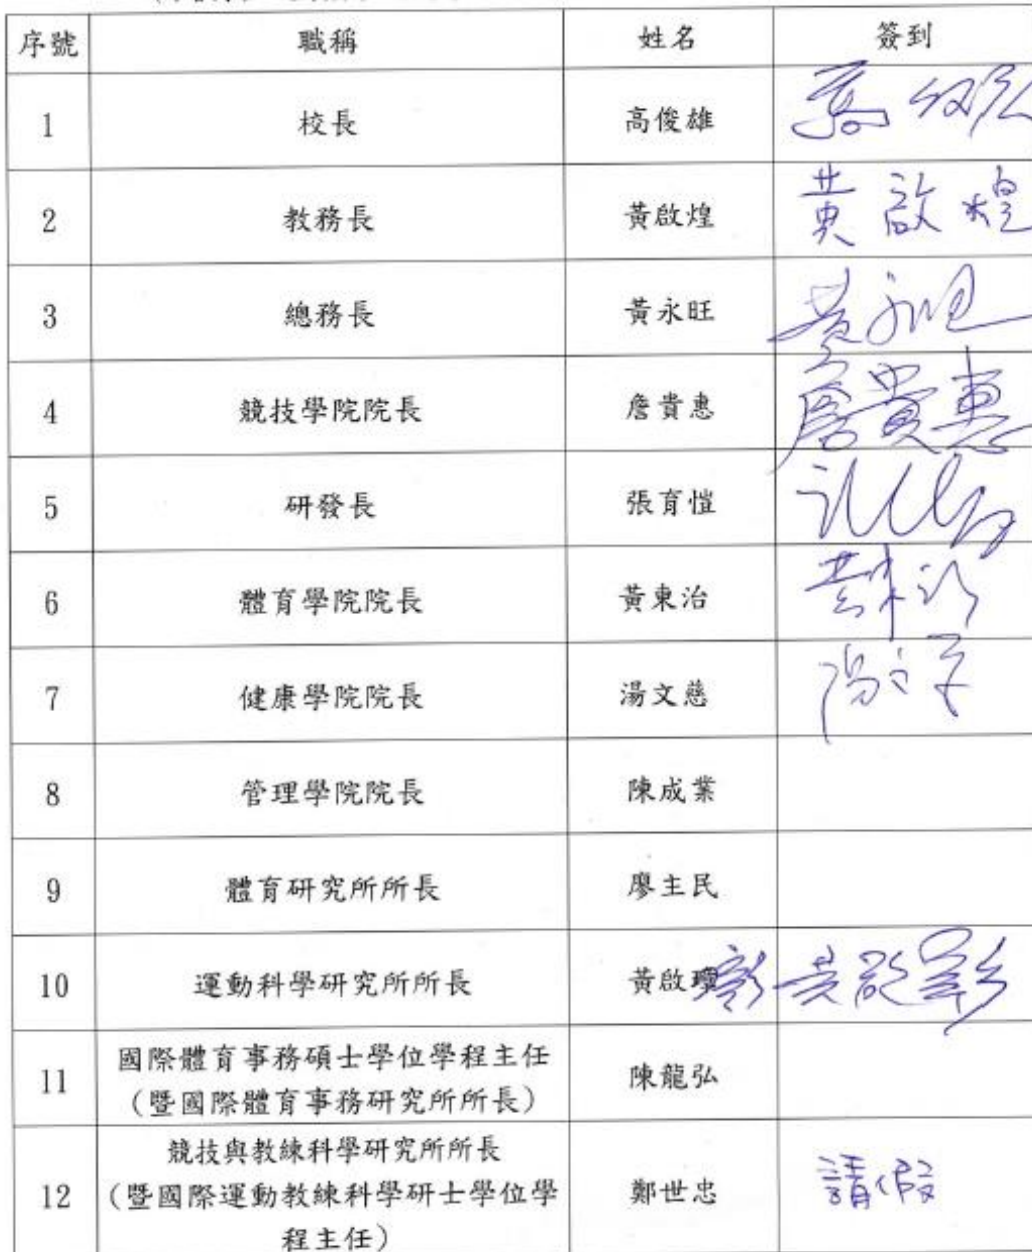 序號 職稱 姓名 簽到
1 校長 高俊雄
2 教務長 黃啟煌 黃啟煌
3 總務長 黃永旺 黃永旺
4 競技學院院長 詹貴惠 詹貴惠
5 研發長 張育愷
6 體育學院院長 黃東治 黃東治
7 健康學院院長 湯文慈 湯文慈
8 管理學院院長 陳成業
9 體育研究所所長 廖主民
10 運動科學研究所所長 黃啟彰 黃啟彰
國際體育事務碩士學位學程主任
11 陳龍弘
(暨國際體育事務研究所所長)
競技與教練科學研究所所長
12 (暨國際運動教練科學研士學位學 鄭世忠 請假
程主任)